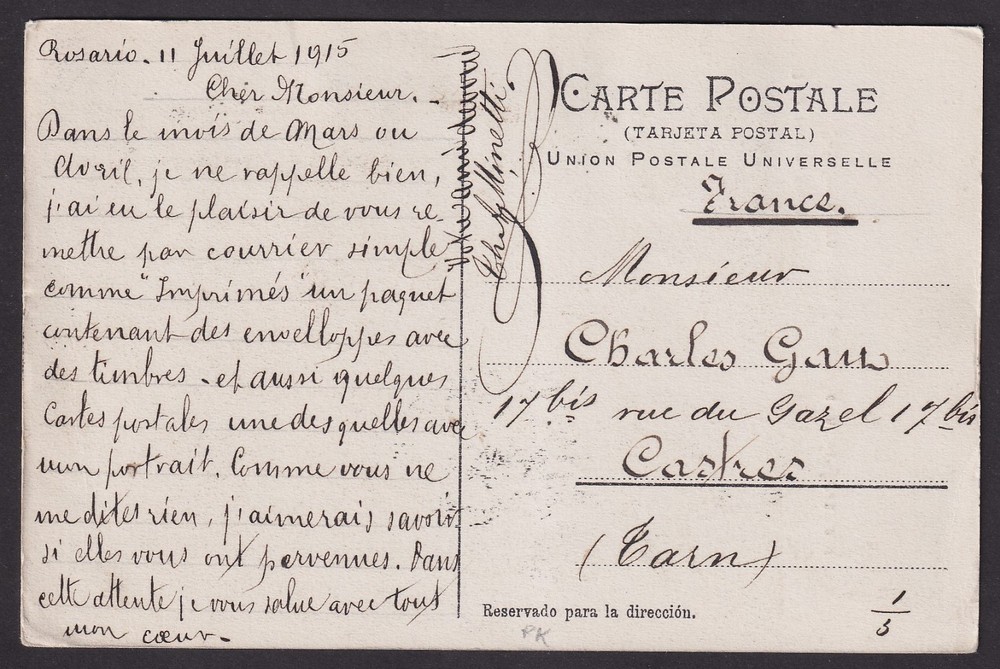 Rosario. 11 Juillet 1915
Cher Monsieur.
Dans le mois de Mars ou
Avril, je ne rappelle bien,
j'ai eu le plaisir de vous re-
mettre par courrier simple
comme "Imprimés" un paquet
contenant des envelloppes avec
des timbres - et aussi quelques
Cartes postales une des quelles avec
mon portrait. Comme vous ne
me dites rien, j'aimerais savoir
si elles vous ont pervennes. Dans
cette attente je vous salue avec tout
mon cœur -
Votre ami dévoué
Minetti
CARTE POSTALE
(TARJETA POSTAL)
UNION POSTALE UNIVERSELLE
France.
Monsieur
Charles Gau
17 bis rue du Gazel 17 bis
Castres
(Tarn)
Reservado para la dirección.
1/5
PK